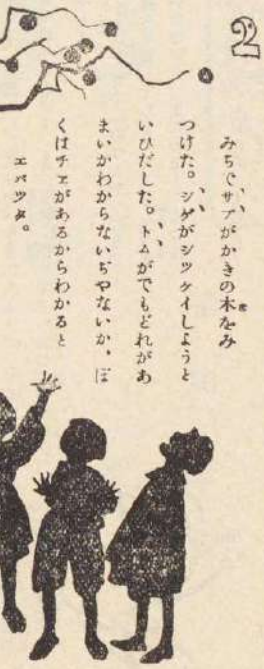 2
みちでサブがかきの木をみ
つけた。シゲがシツケイしようと
いひだした。トムがでもどれがあ
まいかわからないぢやないか、ぼ
くはチヱがあるからわかると
ヱバツタ。